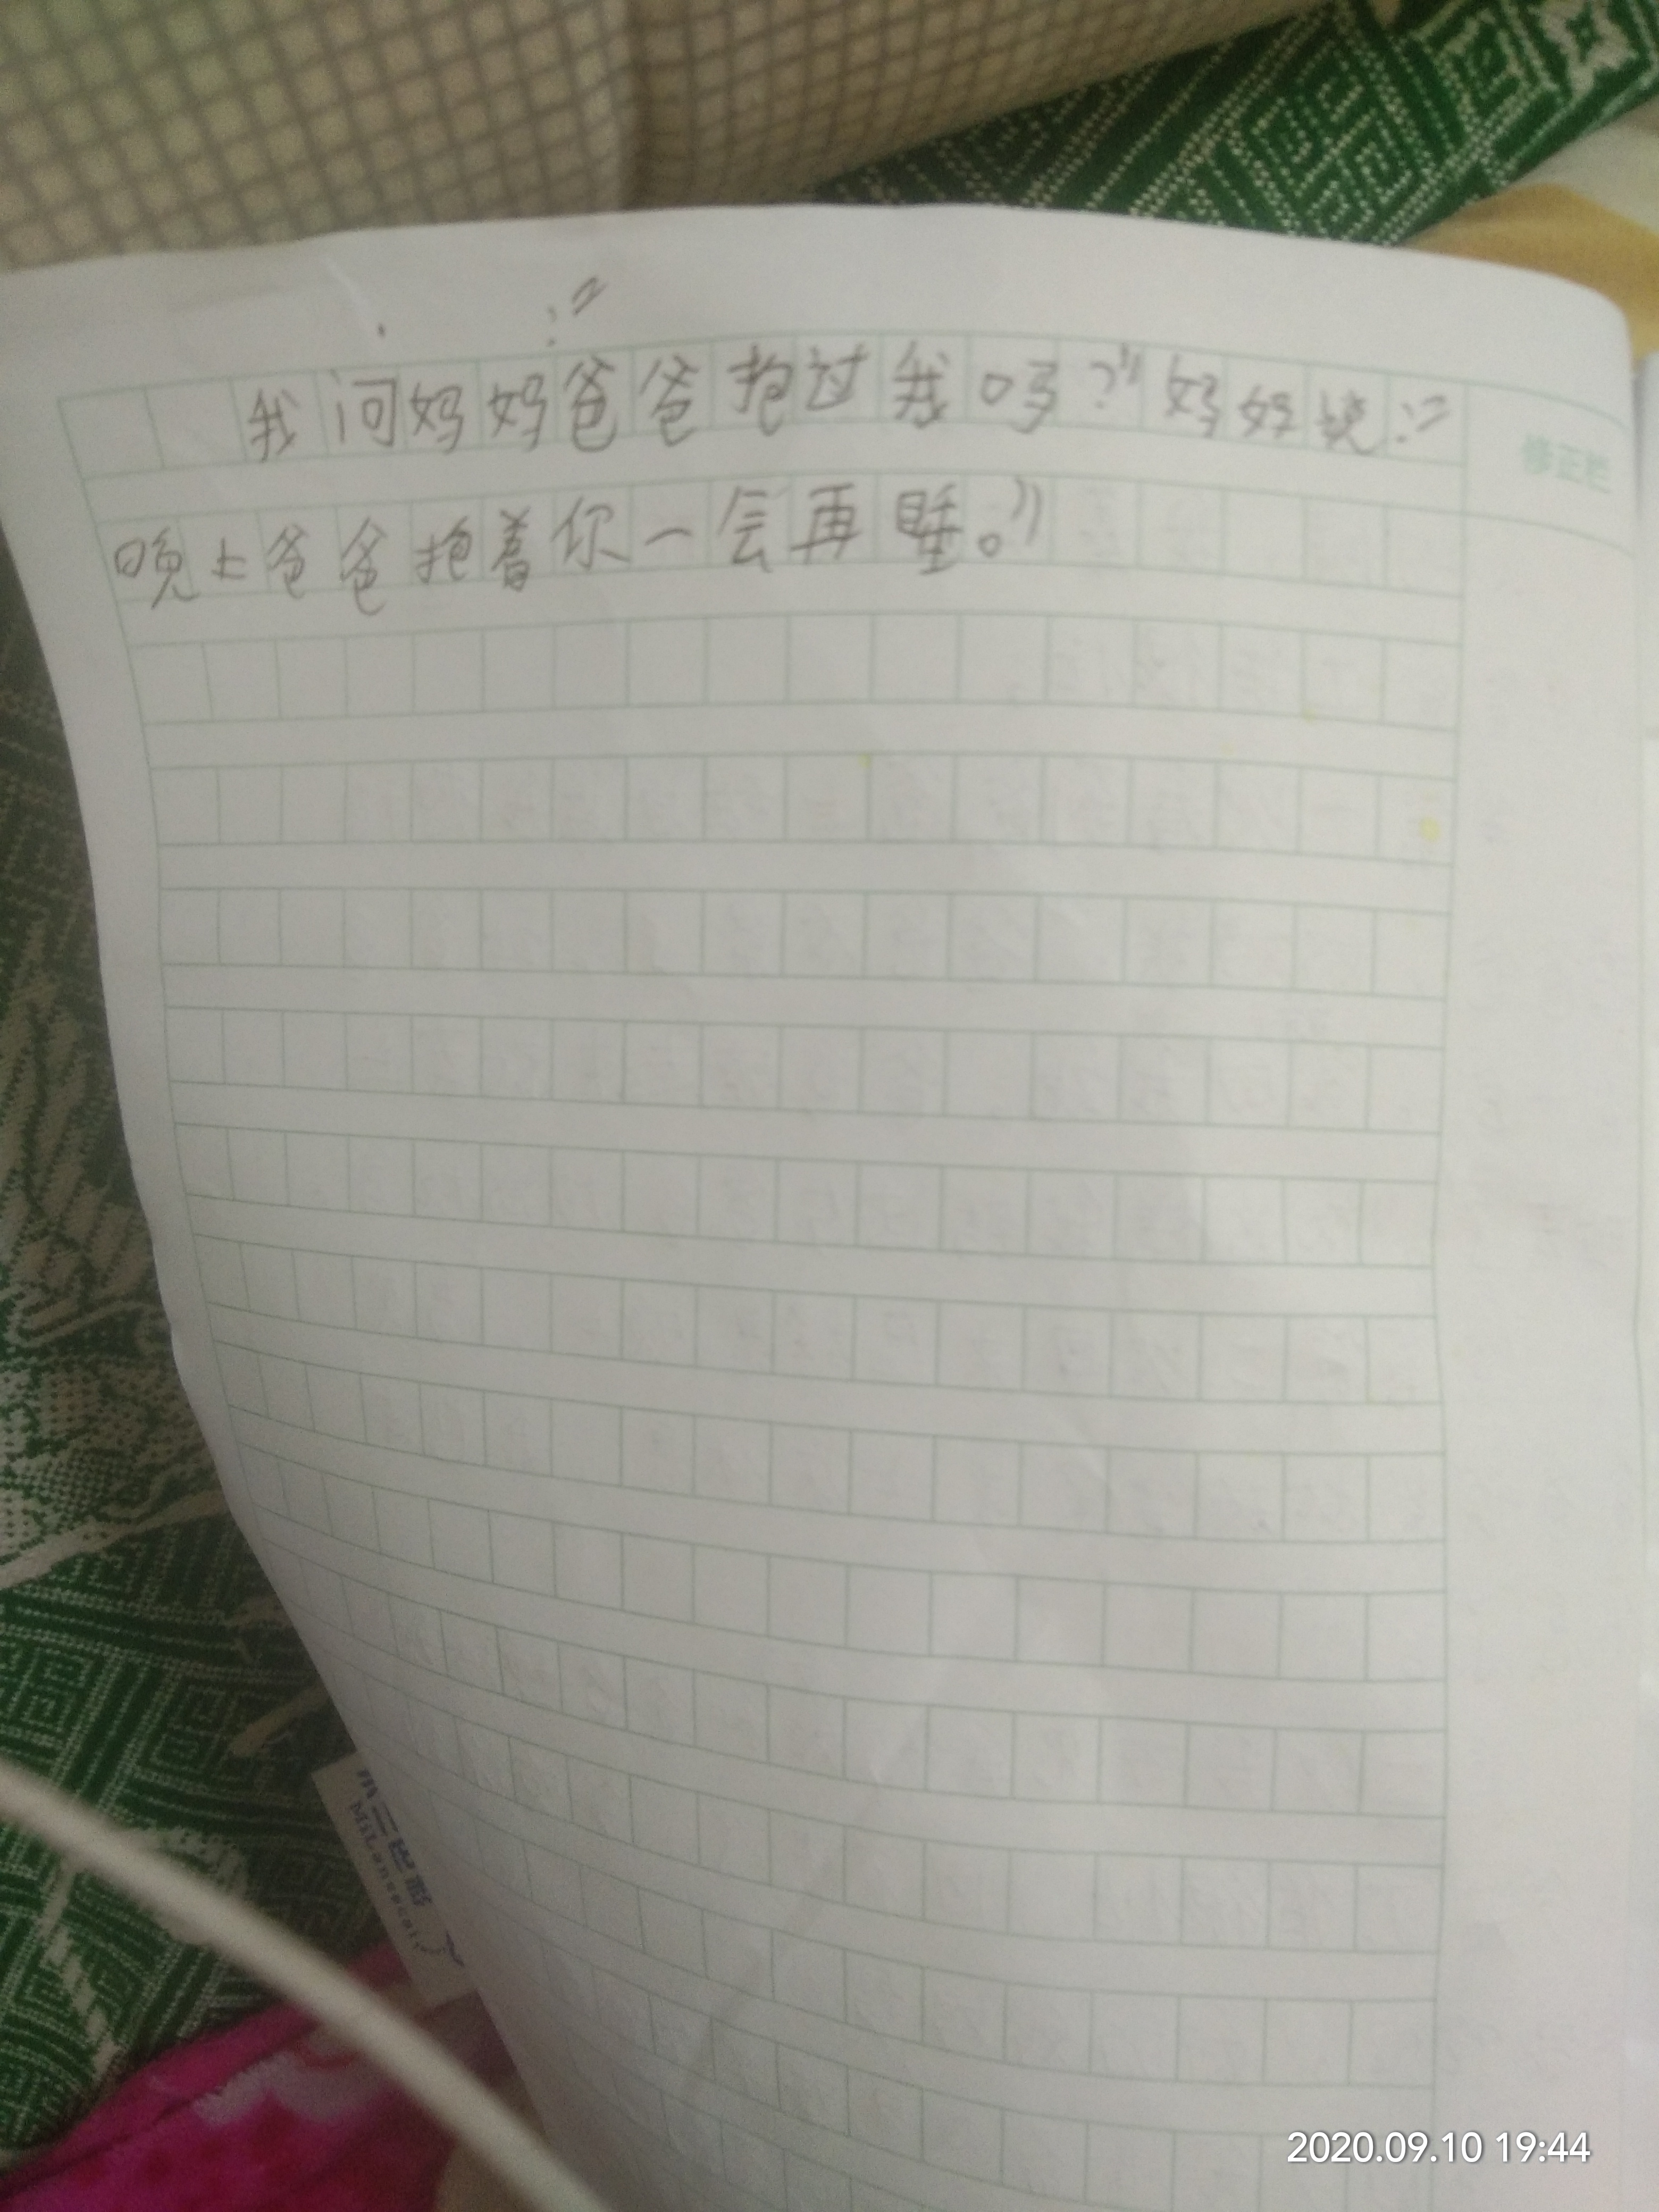 :“
我问妈妈爸爸抱过我吗？”妈妈说：“
修正栏
晚上爸爸抱着你一会再睡。”
2020.09.10 19:44